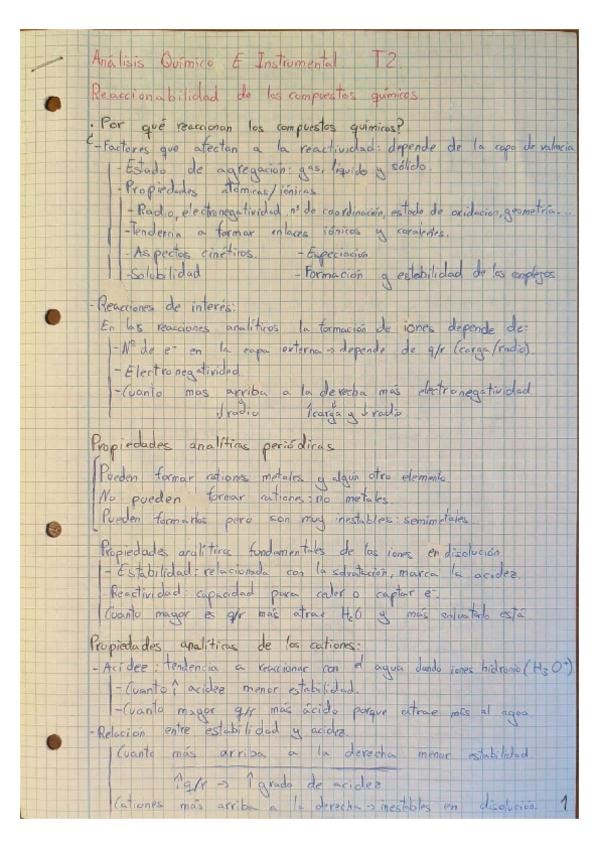 Análisis Químico E Instrumental T2.
Reaccionabilidad de los compuestos químicos.
· Por qué reaccionan los compuestos químicos?
- Factores que afectan a la reactividad: depende de la capa de valencia
- Estado de agregación: gas, líquido y sólido.
- Propiedades atómicas/iónicas
- Radio, electronegatividad, nº de coordinación, estado de oxidación, geometría...
- Tendencia a formar enlaces iónicos y covalentes.
- Aspectos cinéticos. - Especiación
- Solubilidad - Formación y estabilidad de los complejos
- Reacciones de interés:
En las reacciones analíticas la formación de iones depende de:
- Nº de e- en la capa externa → depende de q/r (carga/radio).
- Electronegatividad
- Cuanto mas arriba a la derecha más electronegatividad
↓radio ↑carga y ↓radio
Propiedades analíticas periódicas
Pueden formar cationes metales y algún otro elemento
No pueden formar cationes: no metales.
Pueden formarlos pero son muy inestables: semimetales
Propiedades analíticas fundamentales de los iones en disolución
- Estabilidad: relacionada con la solvatación, marca la acidez.
Reactividad: capacidad para ceder o captar e-.
Cuanto mayor es q/r más atrae H2O y más solvatado está
Propiedades analíticas de los cationes:
- Acidez: tendencia a reaccionar con el agua dando iones hidronio (H3O+)
- Cuanto ↑ acidez menor estabilidad.
- Cuanto mayor q/r más ácido porque atrae más al agua.
- Relacion entre estabilidad y acidez.
Cuanto más arriba a la derecha menor estabilidad
↑q/r → ↑grado de acidez
Cationes más arriba a la derecha → inestables en disolución. 1